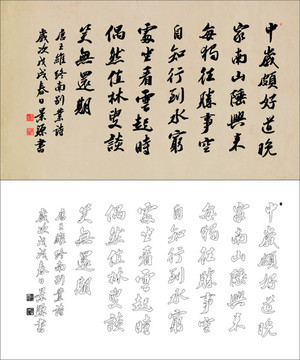 中歲頗好道晚
家南山陲興来
每獨往勝事空
自知行到水窮
處坐看雲起時
偶然值林叟談
笑無還期
唐王維終南别業詩
歲次戊戌春日景書
中歲頗好道晚
家南山陲興来
每獨往勝事空
自知行到水窮
處坐看雲起時
偶然值林叟談
笑無還期
唐王維終南别業詩
歲次戊戌春日景書